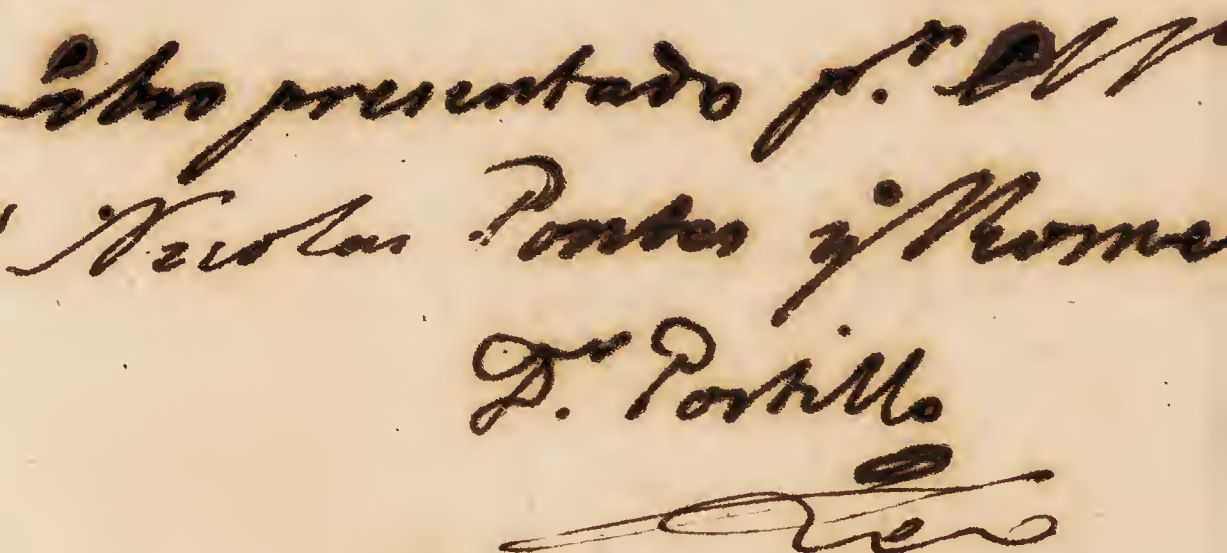 Libro presentado pr.
Nicolas Pontes y Rome
Dr. Portillo